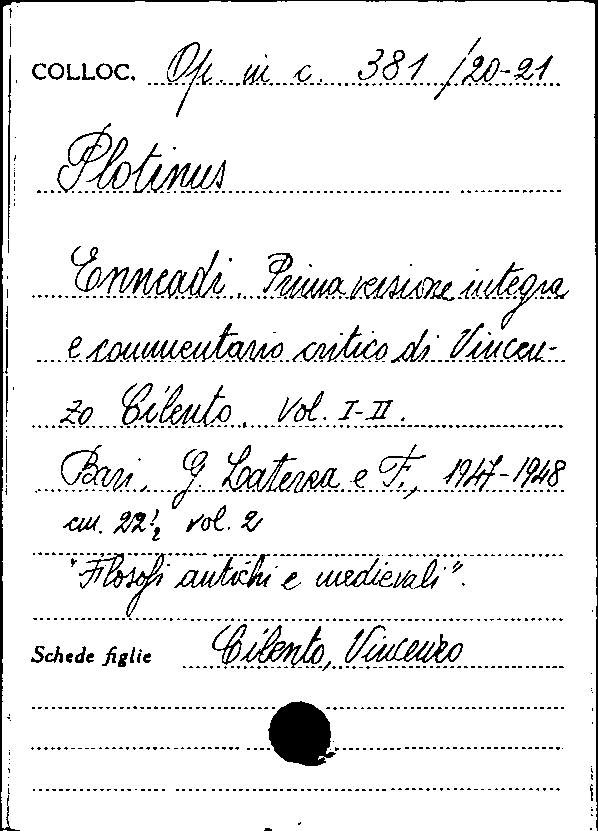 COLLOC. Op. in c. 381 /20-21
Plotinus
Enneadi. Prima versione integra
e commentario critico di Vincen-
zo Cilento. Vol. I-II.
Bari, G. Laterza e F., 1947-1948
cm. 22½ vol. 2
"Filosofi antichi e medievali".
Schede figlie Cilento, Vincenzo